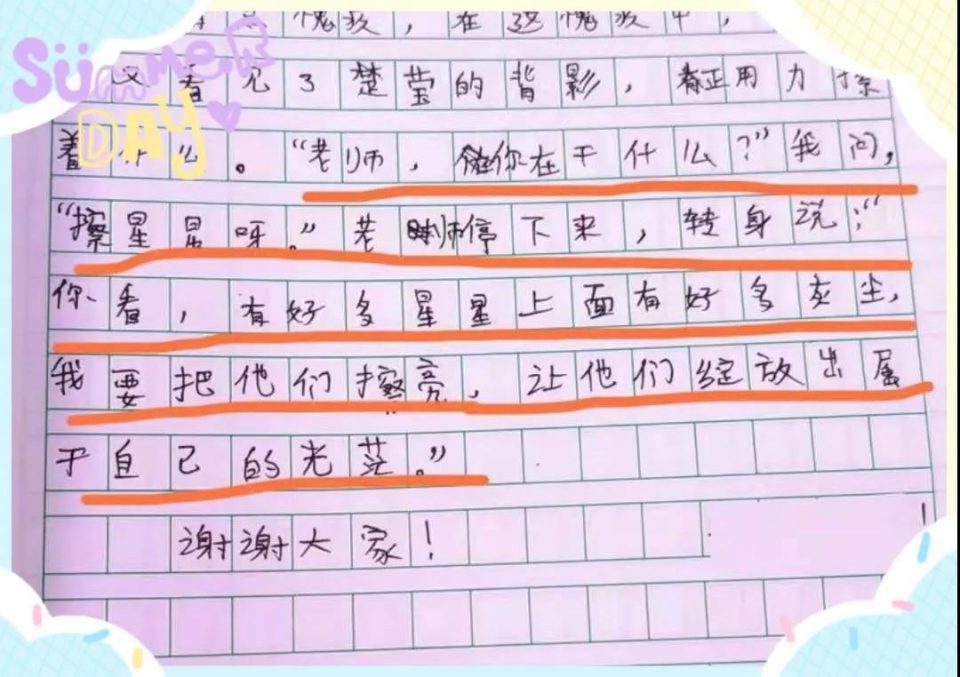 SüMMer
DAY
愧疚，在这愧疚中，
又看见了楚莹的背影，正用力擦
着什么。“老师，你在干什么？”我问，
“擦星星呀。”老师停下来，转身说：“
你看，有好多星星上面有好多灰尘，
我要把他们擦亮，让他们绽放出属
于自己的光茫。”
谢谢大家！